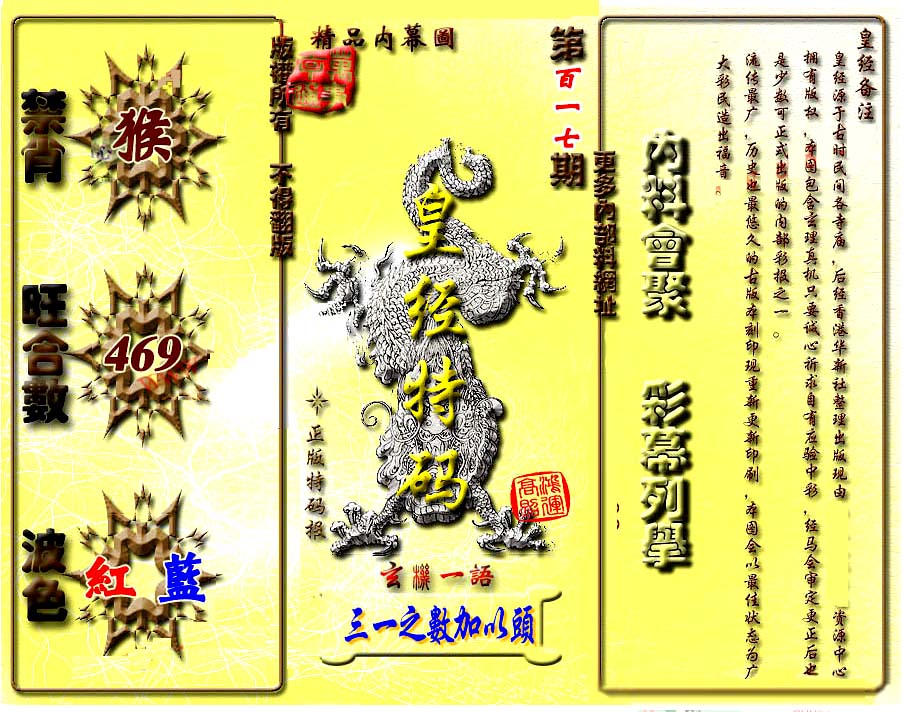 皇经备注
皇经源于古时民间各寺庙,后经香港华新社整理出版现由 资源中心
拥有版权,本图包含玄理真机只要诚心祈求自有应验中彩,经马会审定更正后也
是少数可正式出版的内部彩报之一。
流传最广,历史也最悠久的古版本刻印现重新更新印刷,本图会以最佳状态为广
大彩民造出福音
內料會聚 彩幕列舉
更多內部料網址
第百一七期
精品内幕圖
皇经特码
正版特码报
鴻運高照
玄機一語
三一之數加以頭
版權所有 不得翻版
禁肖
猴
旺合數
469
波色
紅 藍